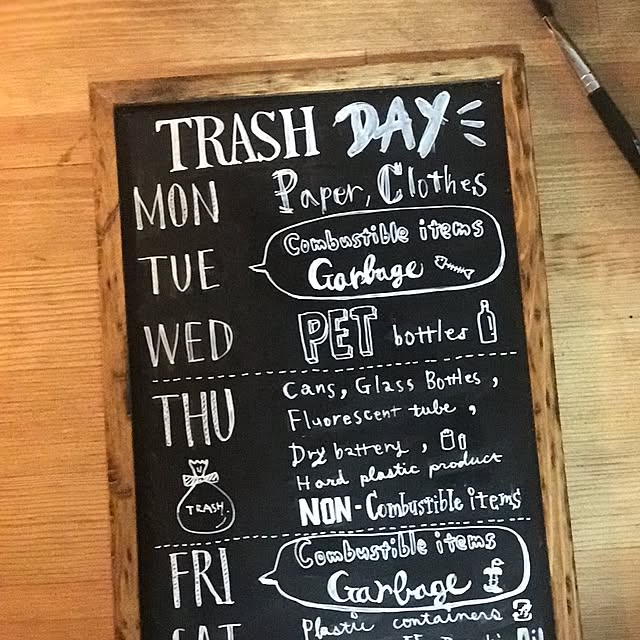 TRASH DAY
MON Paper, Clothes
TUE Combustible items
Garbage
WED PET bottles
THU Cans, Glass Bottles,
Fluorescent tube,
Dry battery,
Hard plastic product
TRASH.
NON-Combustible items
FRI Combustible items
Garbage
SAT Plastic containers